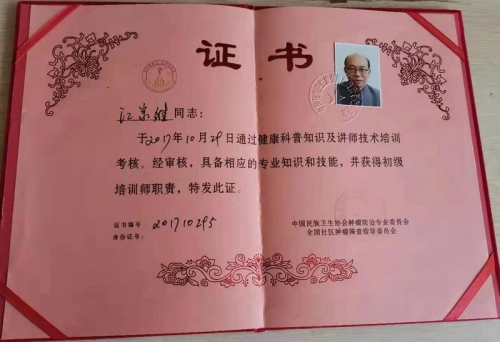 证书
江 同志：
于2017年10月29日通过健康科普知识及讲师技术培训
考核。经审核，具备相应的专业知识和技能，并获得初级
培训师职责，特发此证。
证书编号：201710295
身份证号：
中国民族卫生协会肿瘤防治专业委员会
全国社区肿瘤筛查指导委员会